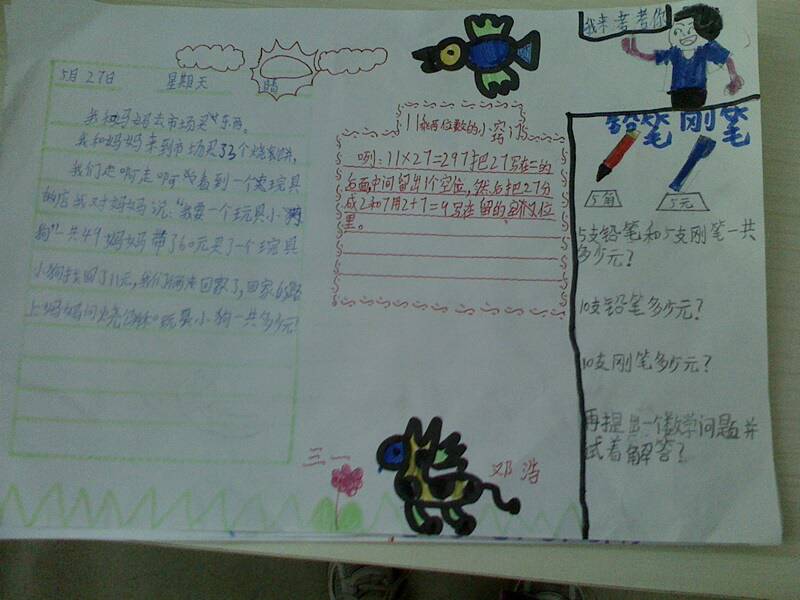 5月27日 星期天 晴
我和妈妈去市场买东西。
我和妈妈来到市场买33个烧饼,
我们走啊走啊看到一个卖玩具
的店我对妈妈说:"我要一个玩具小
狗"一共49妈妈带了60元买了一个玩具
小狗找回了11元,我们俩走回家了,回家的路
上妈妈问烧饼和玩具小狗一共多少元?
11乘两位数的小窍门
例:11×27=297把27写在=的
右面中间留出1个空位,然后把27分
成2和7用2+7=9写在留的空位
里。
三一
邓浩
我来考考你
铅笔 刚笔
5角 5元
5支铅笔和5支刚笔一共
多少元?
10支铅笔多少元?
10支刚笔多少元?
再提出一个数学问题并
试着解答?